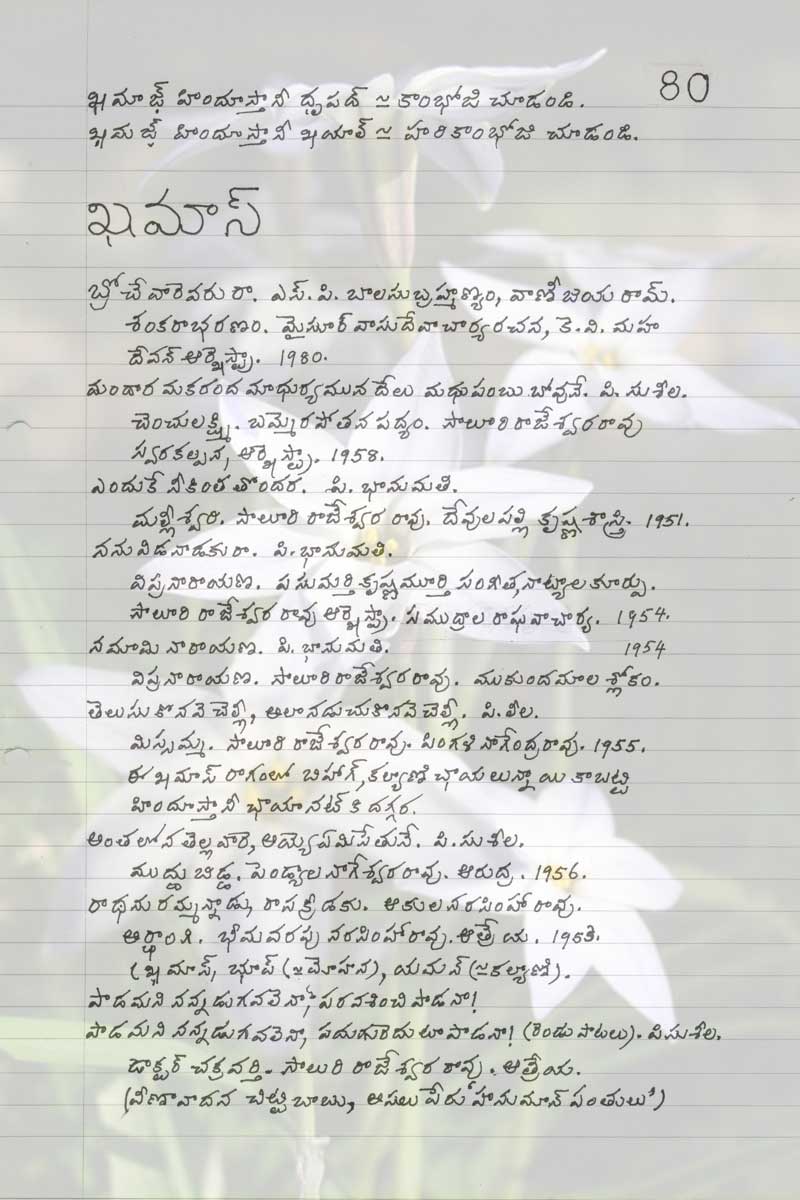 80
ఖమాజ్ హిందూస్తానీ ధృపద్ ≃ కాంభోజి చూడండి.
ఖమజ్ హిందూస్తానీ ఖయాల్ ≃ హరికాంభోజి చూడండి.
ఖమాస్
బ్రోచేవారెవరురా. ఎస్.పి. బాలసుబ్రహ్మణ్యం, వాణీజయరామ్.
శంకరాభరణం. మైసూర్ వాసుదేవాచార్య రచన, కె.వి. మహా
దేవన్ ఆర్కెస్ట్రా. 1980.
మందార మకరంద మాధుర్యమున దేలు మధుపంబు బోవునే. పి.సుశీల.
చెంచులక్ష్మి. బమ్మెర పోతన పద్యం. సాలూరి రాజేశ్వరరావు
స్వరకల్పన, ఆర్కెస్ట్రా. 1958.
ఎందుకే నీకింత తొందర. పి. భానుమతి.
మల్లీశ్వరి. సాలూరి రాజేశ్వర రావు. దేవులపల్లి కృష్ణశాస్త్రి. 1951.
నను విడనాడకురా. పి.భానుమతి.
విప్రనారాయణ. పసుమర్తి కృష్ణమూర్తి సంగీత, నాట్యాల కూర్పు.
సాలూరి రాజేశ్వర రావు ఆర్కెస్ట్రా. సముద్రాల రాఘవాచార్య. 1954.
నమామి నారాయణ. పి. భానుమతి. 1954
విప్రనారాయణ. సాలూరి రాజేశ్వరరావు. ముకుందమాల శ్లోకం.
తెలుసుకొనవె చెల్లీ, అలా నడుచుకొనవె చెల్లీ. పి.లీల.
మిస్సమ్మ. సాలూరి రాజేశ్వరరావు. పింగళి నాగేంద్రరావు. 1955.
ఈ ఖమాస్ రాగంలో బిహాగ్, కల్యాణి ఛాయలున్నాయి కాబట్టి
హిందూస్తానీ ఛాయానట్ కి దగ్గర.
అంతలోన తెల్లవారె, అయ్యొ ఏమి సేతునే. పి.సుశీల.
ముద్దు బిడ్డ. పెండ్యాల నాగేశ్వరరావు. ఆరుద్ర. 1956.
రాధను రమ్మన్నాడు, రాసక్రీడకు. ఆకుల నరసింహారావు.
అర్ధాంగి. భీమవరపు నరసింహారావు. ఆత్రేయ.
(ఖమాస్, భూప్ (≃మోహన), యమన్ (≃కల్యాణి).
పాడమని నన్నడుగవలెనా, పరవశించి పాడనా!
పాడమని నన్నడుగవలెనా, పదుగురెదుటా పాడనా! (రెండు పాటలు). పి.సుశీల.
డాక్టర్ చక్రవర్తి. సాలూరి రాజేశ్వర రావు. ఆత్రేయ.
(వీణావాదన చిట్టిబాబు, అసలు పేరు 'హనుమాన్ పంతులు')